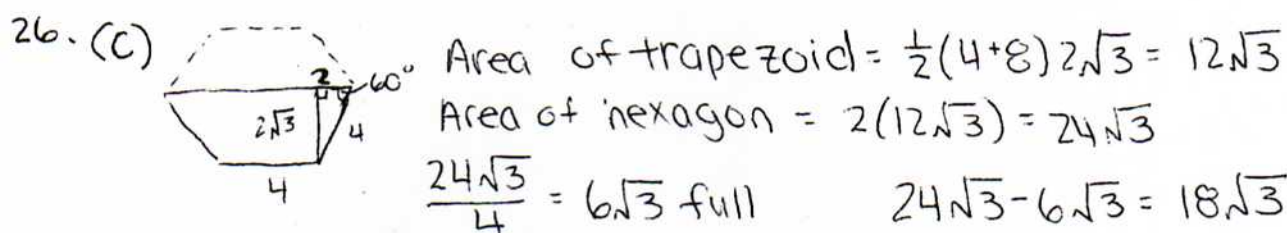 26. (C)
2
60°
2√3
4
4
Area of trapezoid = 1/2(4+8)2√3 = 12√3
Area of hexagon = 2(12√3) = 24√3
24√3/4 = 6√3 full
24√3-6√3 = 18√3